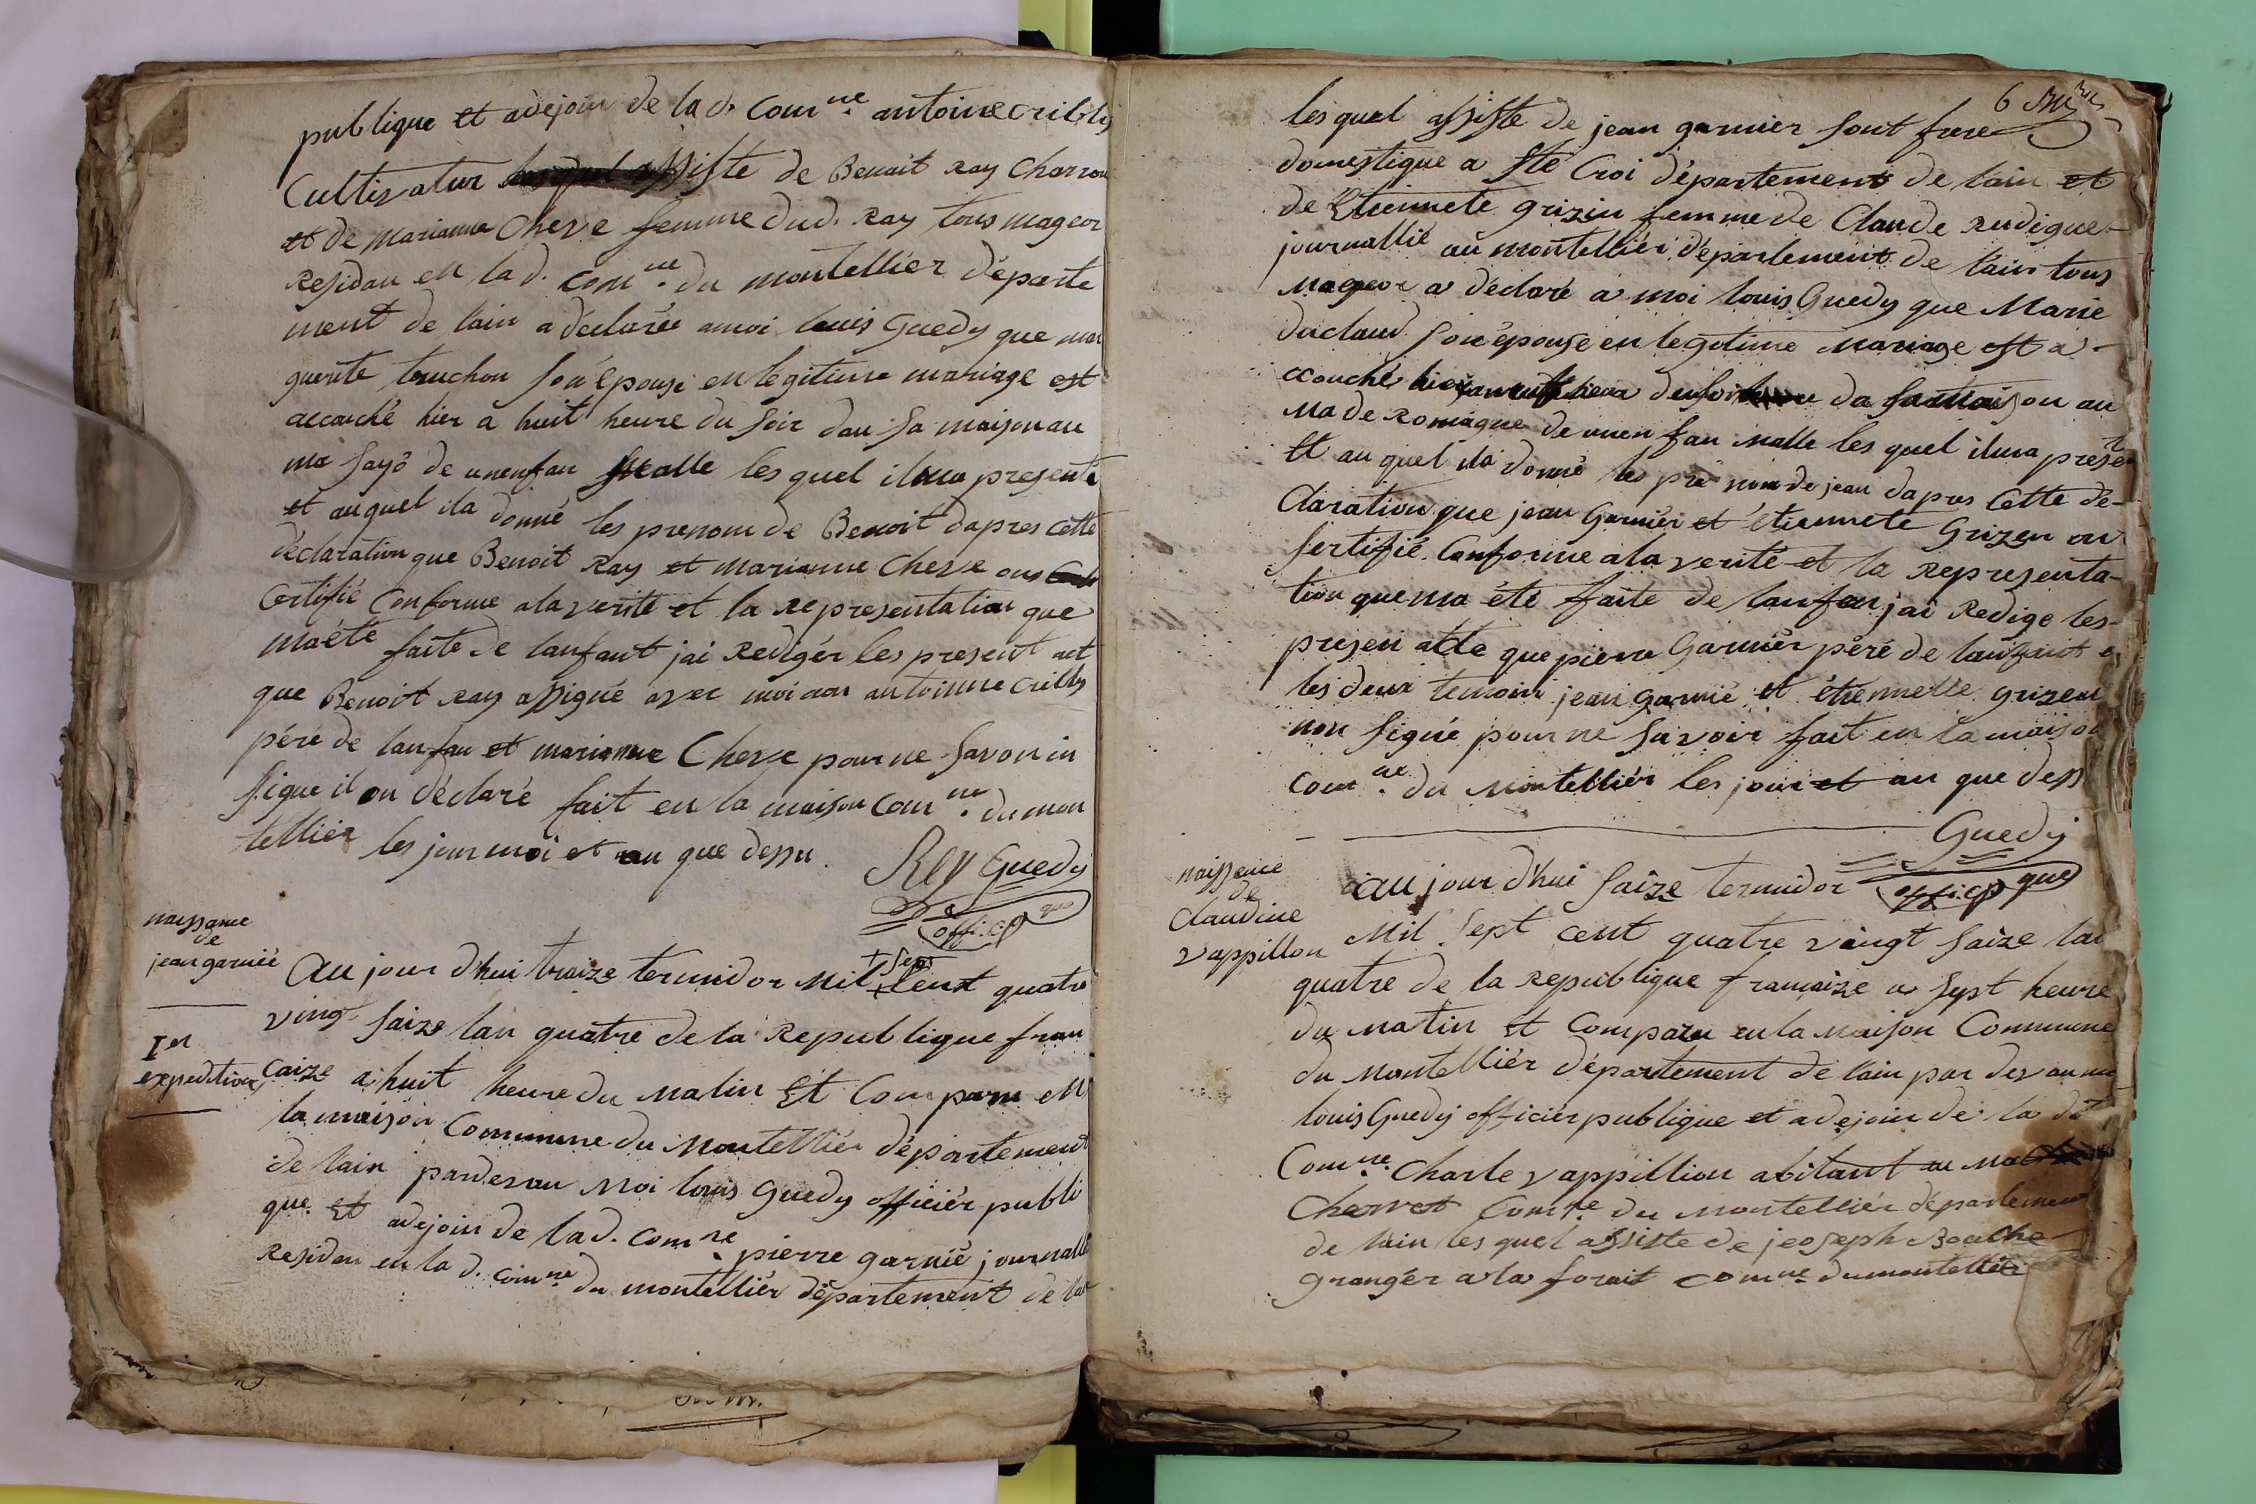 publique et adejoin de la d. Comne. antoine cribly
Cultivatur lesquel assiste de Benoit Ray Charron
et de marianne Cheve femme dud. Ray tous mageor
Residan en la d. comne. du montelliér départe
ment de lain a déclarée amoi louis Guedy que mar
guerite truchon son épouse en legitime mariage est
accouché hier a huit heure du soir dan sa maison au
ma sayo de unenfan malle les quel ilma presente
et auquel ila donné les prenom de Benoit dapres cette
déclaration que Benoit Ray et marianne Cheve ons
Certifié Conforme ala verité et la representation que
maété faite de lanfant jai Redigér les present act
que Benoit Ray assigné avec moi non antoinne cribly
pére de lanfan et marianne Cheve pour ne Savon in
signe il on déclaré fait en la maison Comne. du mon
telliér les jour moi et an que dessu.
Rey Guedy
offi. que
naissance
de
jean garnié
Au jour d'hui traize termidor Mil + cent quatre
+ sept
vingt saize lan quatre de la Republique fran
Ier
expedition
caize a huit heure du Matin Et Comparu en
la maison Commune du Montelliér département
de lain pardevan Moi louis Guedy officiér publi
que et adejoin de la d. comne. pierre garnié journallié
Residan en la d. comne. du montelliér département de lain
6
les quel assiste de jean garnier sont frere
domestique a Ste Croi département de lain et
de Etiennete grizin femme de Claude Rudigue
journallié au montelliér département de lain tous
Mageor a déclaré a moi louis Guedy que Marie
duclaud son épouse en legotime Mariage est a-
ccouché hier da sa Maison au
Ma de Romagne de unen fan malle les quel ilma présen
Et au quel ila donné les pré nom de jean dapres Cette dé-
claration que jean Garniér et étiennete Grizen on
sertifié Conforme ala verité et la Representa-
tion que ma été faite de lanfan jai Redige les-
presen atte que pierre Garniér péré de lanfant e
les deux temoin jean garnié et étiennette grizen
non signé pour ne savoir fait en la maison
comne. du Montelliér les jour et an que dess
Guedy
offi. que
naissance
de
Claudine
vappillon
au jour d'hui saize termidor
Mil Sept cent quatre vaingt saize lan
quatre de la Republique francaize a sept heure
du Matin Et Comparu en la Maison Commune
du Montelliér département de lain par devan moi
louis Guedy officiér publique et adejoin de la dt
Comne. Charle vappillion abitant au Ma
Charvet Comne du Montelliér département
de lain les quel assiste de jeoseph Bouthe
grangér ala forait comne. dumontelliér